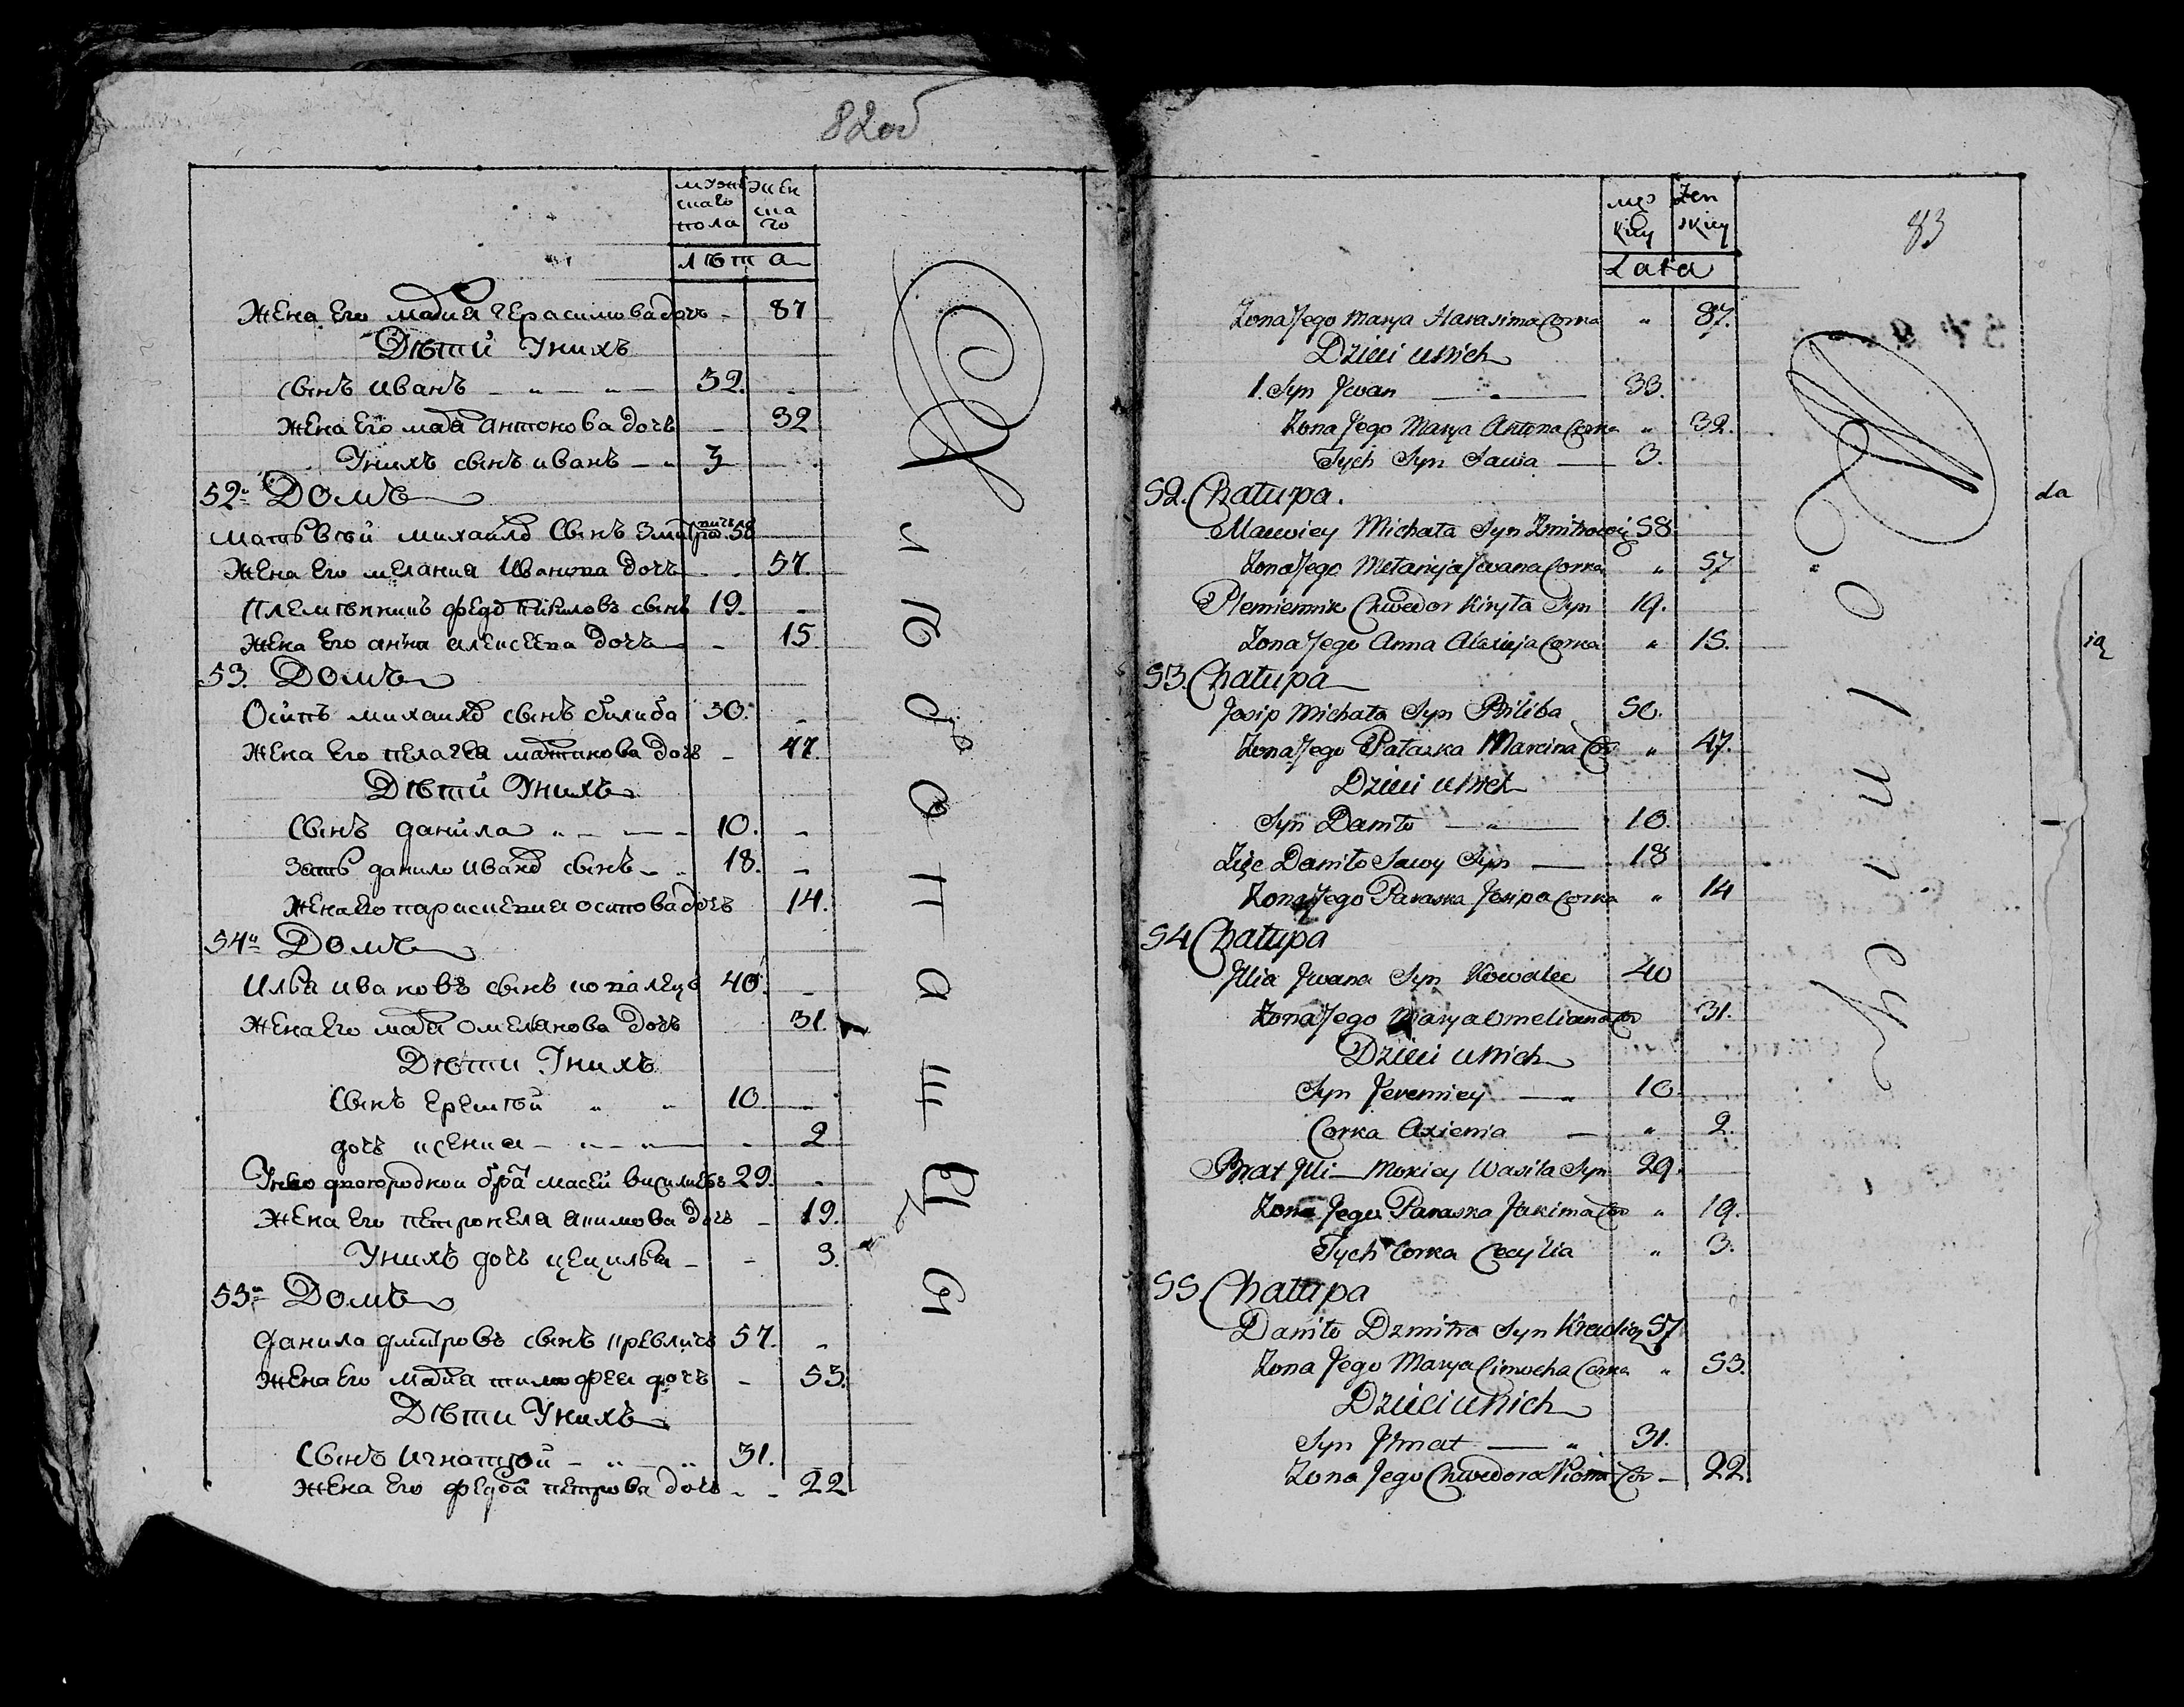 82об
мужескаго пола женскаго
лѣта
Жена Его мария Герасимова дочь - 87
Дѣти Уних
сынъ иванъ 32.
жена его мария антонова дочь - 32
Уних сынъ иванъ 3
52й Домъ
матьвѣй михайло Сынъ 58
Жена Его мелания Иванова дочь 57.
Племѣнникъ федо Кирилов сынъ 19.
Жена Его анна алексеева дочь - 15.
53. Домъ
Осипъ михаило сынъ билиба 50.
Жена Его пелагея мартинова дочь - 47.
Дѣти Унихъ
Сынъ данила 10.
зять данило ивано сынъ 18.
Жена его парасцевия осипова дочь 14.
54й Домъ
Илья ивановъ сынъ ковалецъ 40.
Жена Его мария омелянова дочь 31.
Дѣти Унихъ
Сынъ еремѣй 10
дочь ксения 2
Унево двоюродной брат масей васильевъ 29.
Жена Его петронеля акимова дочь - 19.
Унихъ дочь цецилья 3.
55й Домъ
данила дмитровъ сынъ кревличъ 57.
Жена Его мария тимофея дочь - 53.
Дѣти Уних
Сынъ Игнатѣй 31.
Жена Его федора петрова дочь 22
лѣботашцы
83
męskiey żenskiey
Lata
Zona Jego Marya Harasima Corka " 87.
Dzieci u Nich
1. Syn Jwan 33.
Zona Jego Marya Antona Corka " 32.
Tych Syn Sawa 3.
52. Chałupa.
Macwiey Michała Syn Zmitrowicz 58.
Zona Jego Mełanija Jwana Corka " 57
Plemiennik Chwedor Kiryła Syn 19.
Zona Jego Anna Alexieja Corka " 15.
53. Chałupa
Josip Michała Syn Biliba 50.
Zona Jego Pałaska Marcina Cor " 47.
Dzieci u Nich
Syn Daniło 10.
Zięc Daniło Sawy Syn 18
Zona Jego Paraska Josipa Corka " 14
54 Chałupa
Jllia Jwana Syn Kowalec 40
Zona Jego Marya Omeliana Cor 31.
Dzieci u Nich
Syn Jeremiey 10.
Corka Axienia " 2.
Brat Jlli Moxiey Wasila Syn 29.
Zona Jego Paraska Jakima Cor " 19.
Tych Corka Cecylia " 3.
55. Chałupa
Daniło Dzmitra Syn Krewlicz 57
Zona Jego Marya Cimocha Corka " 53.
Dzieci u Nich
Syn Jhnat 31.
Zona Jego Chwedora Piotra Cor 22.
da
ią